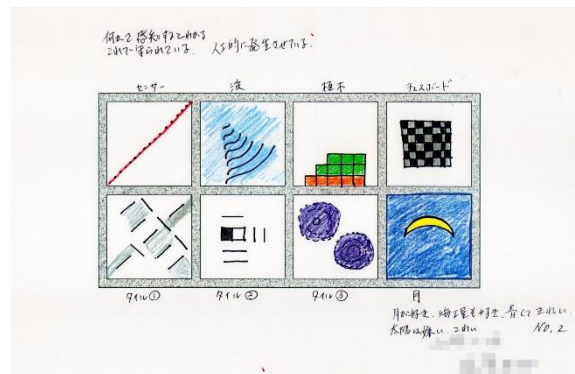 何かを感知するとわかる
これで守られている。 人工的に発生させている。
センサー 波 植木 チェスボード
タイル① タイル② タイル③ 月
月が好き、海も星も好き、青くてきれい
太陽は嫌い、こわい NO.2